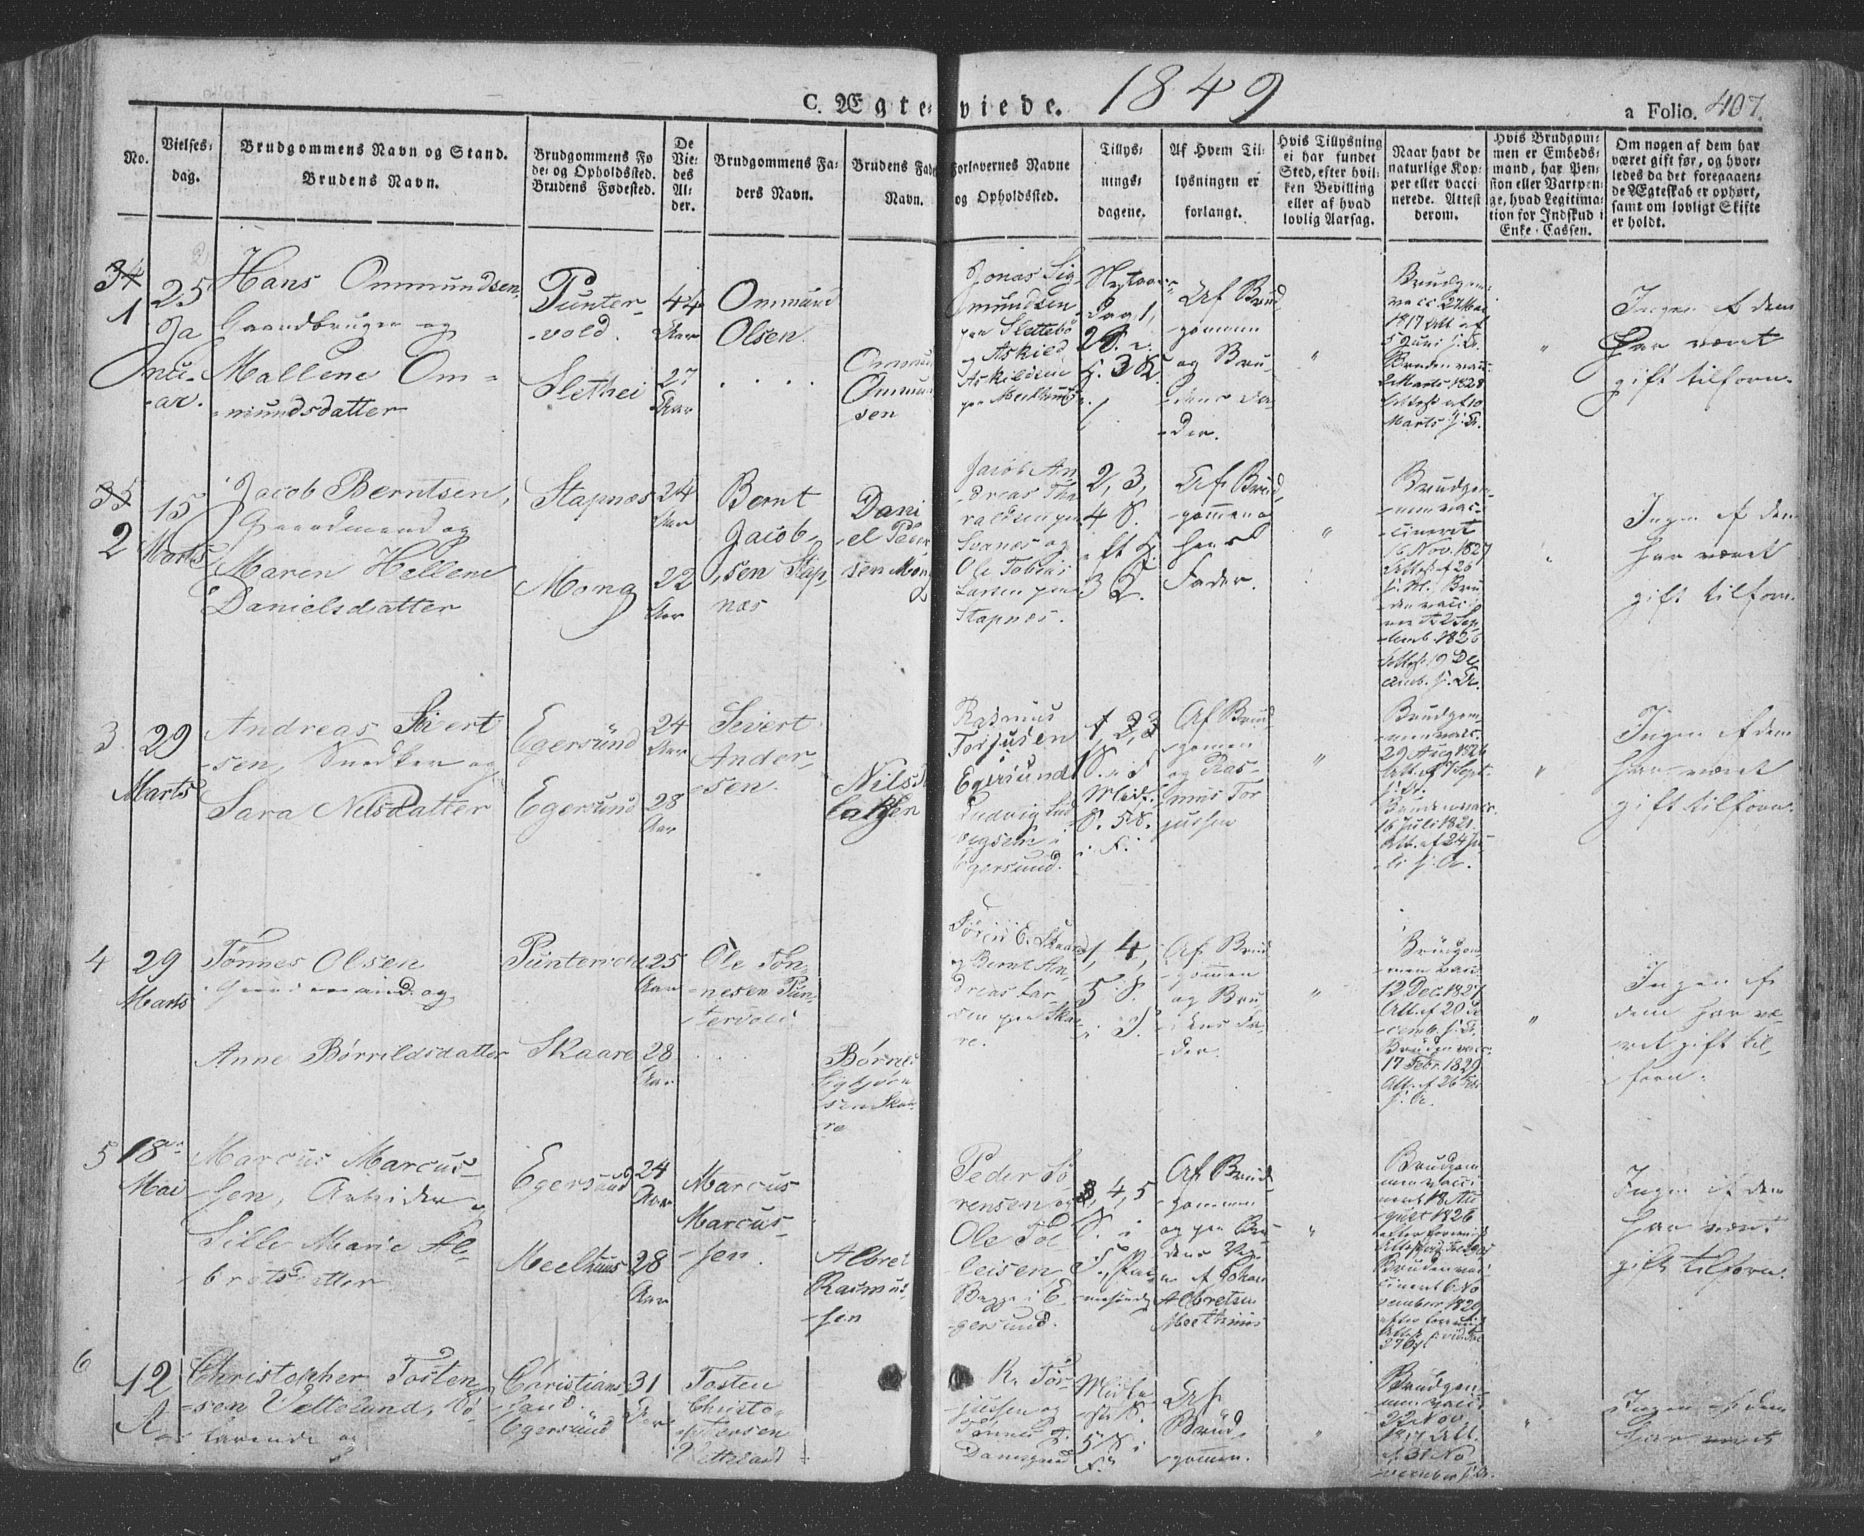 C. Ægteviede. 1849
a Folio. 407.
No.
Vielses-
dag.
Brudgommens Navn og Stand.
Brudens Navn.
Brudgommens Fø
de- og Opholdsted.
Brudens Fødested.
De
Vie-
des
Al-
der.
Brudgommens Fa-
ders Navn.
Brudens Fade
Navn.
Forlovernes Navne
og Opholdsted.
Tillys-
nings-
dagene.
Af Hvem Til-
lysningen er
forlangt.
Hvis Tillysning
ei har fundet
Sted, efter hvil-
ken Bevilling
eller af hvad
lovlig Aarsag.
Naar havt de
naturlige Kop-
per eller vacci
nerede. Attest
derom.
Hvis Brudgom-
men er Embeds-
mand, har Pen-
sion eller Vartpen-
ge, hvad Legitima-
tion for Indskud i
Enke-Cassen.
Om nogen af dem har
været gift før, og hvor-
ledes da det foregaaen-
de Ægteskab er ophørt,
samt om lovligt Skifte
er holdt.
34
1
25
Ja
nu-
ar.
Hans Ommundsen
Gaardbruger og
Mallene Om-
mundsdatter
Punter-
vold.
Slethei
44
Aar
27
Aar
Ommund
Olsen.
. . . .
Ommun
Ommun
sen
Jonas Sig
mundsen
paa Slettebö
og Askild
Askildsen
Af Brud
gommen
og Bru
dens Fa-
der.
"
Brudgom
vacc. 27 Mai
1817 Att. af
5 Juni s. A.
Bruden vacc
2 Marts 1828
Attest af 10
Marts s. A.
"
Ingen af dem
har været
gift tilforn.
35
2
15
Marts
Jacob Berntsen,
Gaardmand og
Maren Hellene
Danielsdatter
Stapnæs
Mong
24
Aar
22
Aar
Bernt
Jacob-
sen Stap
næs
Dani
el Peder
sen Mong
Jacob An
dreas Tha
raldsen paa
Svanes og
Ole Tobias
Larsen paa
Stapnæs.
2, 3,
4 S.
eft H.
3 K.
Af Brud
gommen og
hans
Fader.
"
Brudgom-
men vac-
cineret
16 Nov. 1827
Attest af 26
s. M. Bru
den vacc
2 Sep
temb. 1826
Attest 19 De
cemb. s. A.
"
Ingen af dem
har været
gift tilforn.
3
29
Marts
Andreas Sivert
sen, Snedker og
Sara Nilsdatter
Egersund
Egersund
24
Aar
28
Aar
Sivert
Ander-
sen.
Nils
Rasmus
Torjusen
Egersund
Ludvig Lud
vigsen i
Egersund.
1, 2, 3
S. i F.
Midf.
S. 5 S.
i F.
Af Brud
gommen
og Ras-
mus Tor
jussen
"
Brudgom
men vacc.
29 Aug 1826
Att. af 7 Sept.
s. A.
Bruden vacc.
16 Juli 1821.
Att. af 24 Ju
li s. A.
"
Ingen af dem
har været
gift tilforn.
4
29
Marts
Tönnes Olsen
Gaardmand og
Anne Börrildsdatter
Puntervold
Skaare
25
Aar
28
Aar
Ole Tön-
nesen Pun-
tervold
. . .
Sören E. Skaare
og Bernt An-
dreas Lar-
sen paa Skaa-
re.
1, 4,
5 S.
i F.
Af Brud
gommen
og Bru
dens Fa-
der.
"
Brudgom
men vacc
12 Dec. 1827
Att. af 20 De
cemb. s. A.
Bruden vacc.
17 Febr. 1829
Att. af 26 Febr
s. A.
"
Ingen af
dem har væ-
ret gift til-
forn.
5
18de
Mai
Marcus Marcus-
sen, Arbeider
Sille Marie Al-
bretsdatter
Egersund
Meelhuus
24
Aar
28
Aar
Marcus
Marcus-
sen
Albret
Rasmus-
sen
Peder Sö
rensen og
Ole Tol
leisen
Bagge i E
gersund.
3, 4, 5
S. i
F.
Af Brud-
gommen
og paa Bru
dens Veg
ne af Johan
Albretsen
Meelhuus
"
Brudgom
men vacci
neret 18 Au
gust 1826
Bruden vac
cineret 6 No
vember 1820
Ingen af dem
har været
gift tilforn.
6
12
A
Christopher Tosten
sen Vetteland,
Christians-
sand
Egersund
31
Aar
Tosten
Christo-
phersen
Vetteland
R. Tor-
jussen og
5 S. i
F.
Af
Brud-
gommen.
"
Brudgom-
men vacc
22 Nov
1817 Att.
af 31 No
vember s. A.
"
Ingen af dem
har været